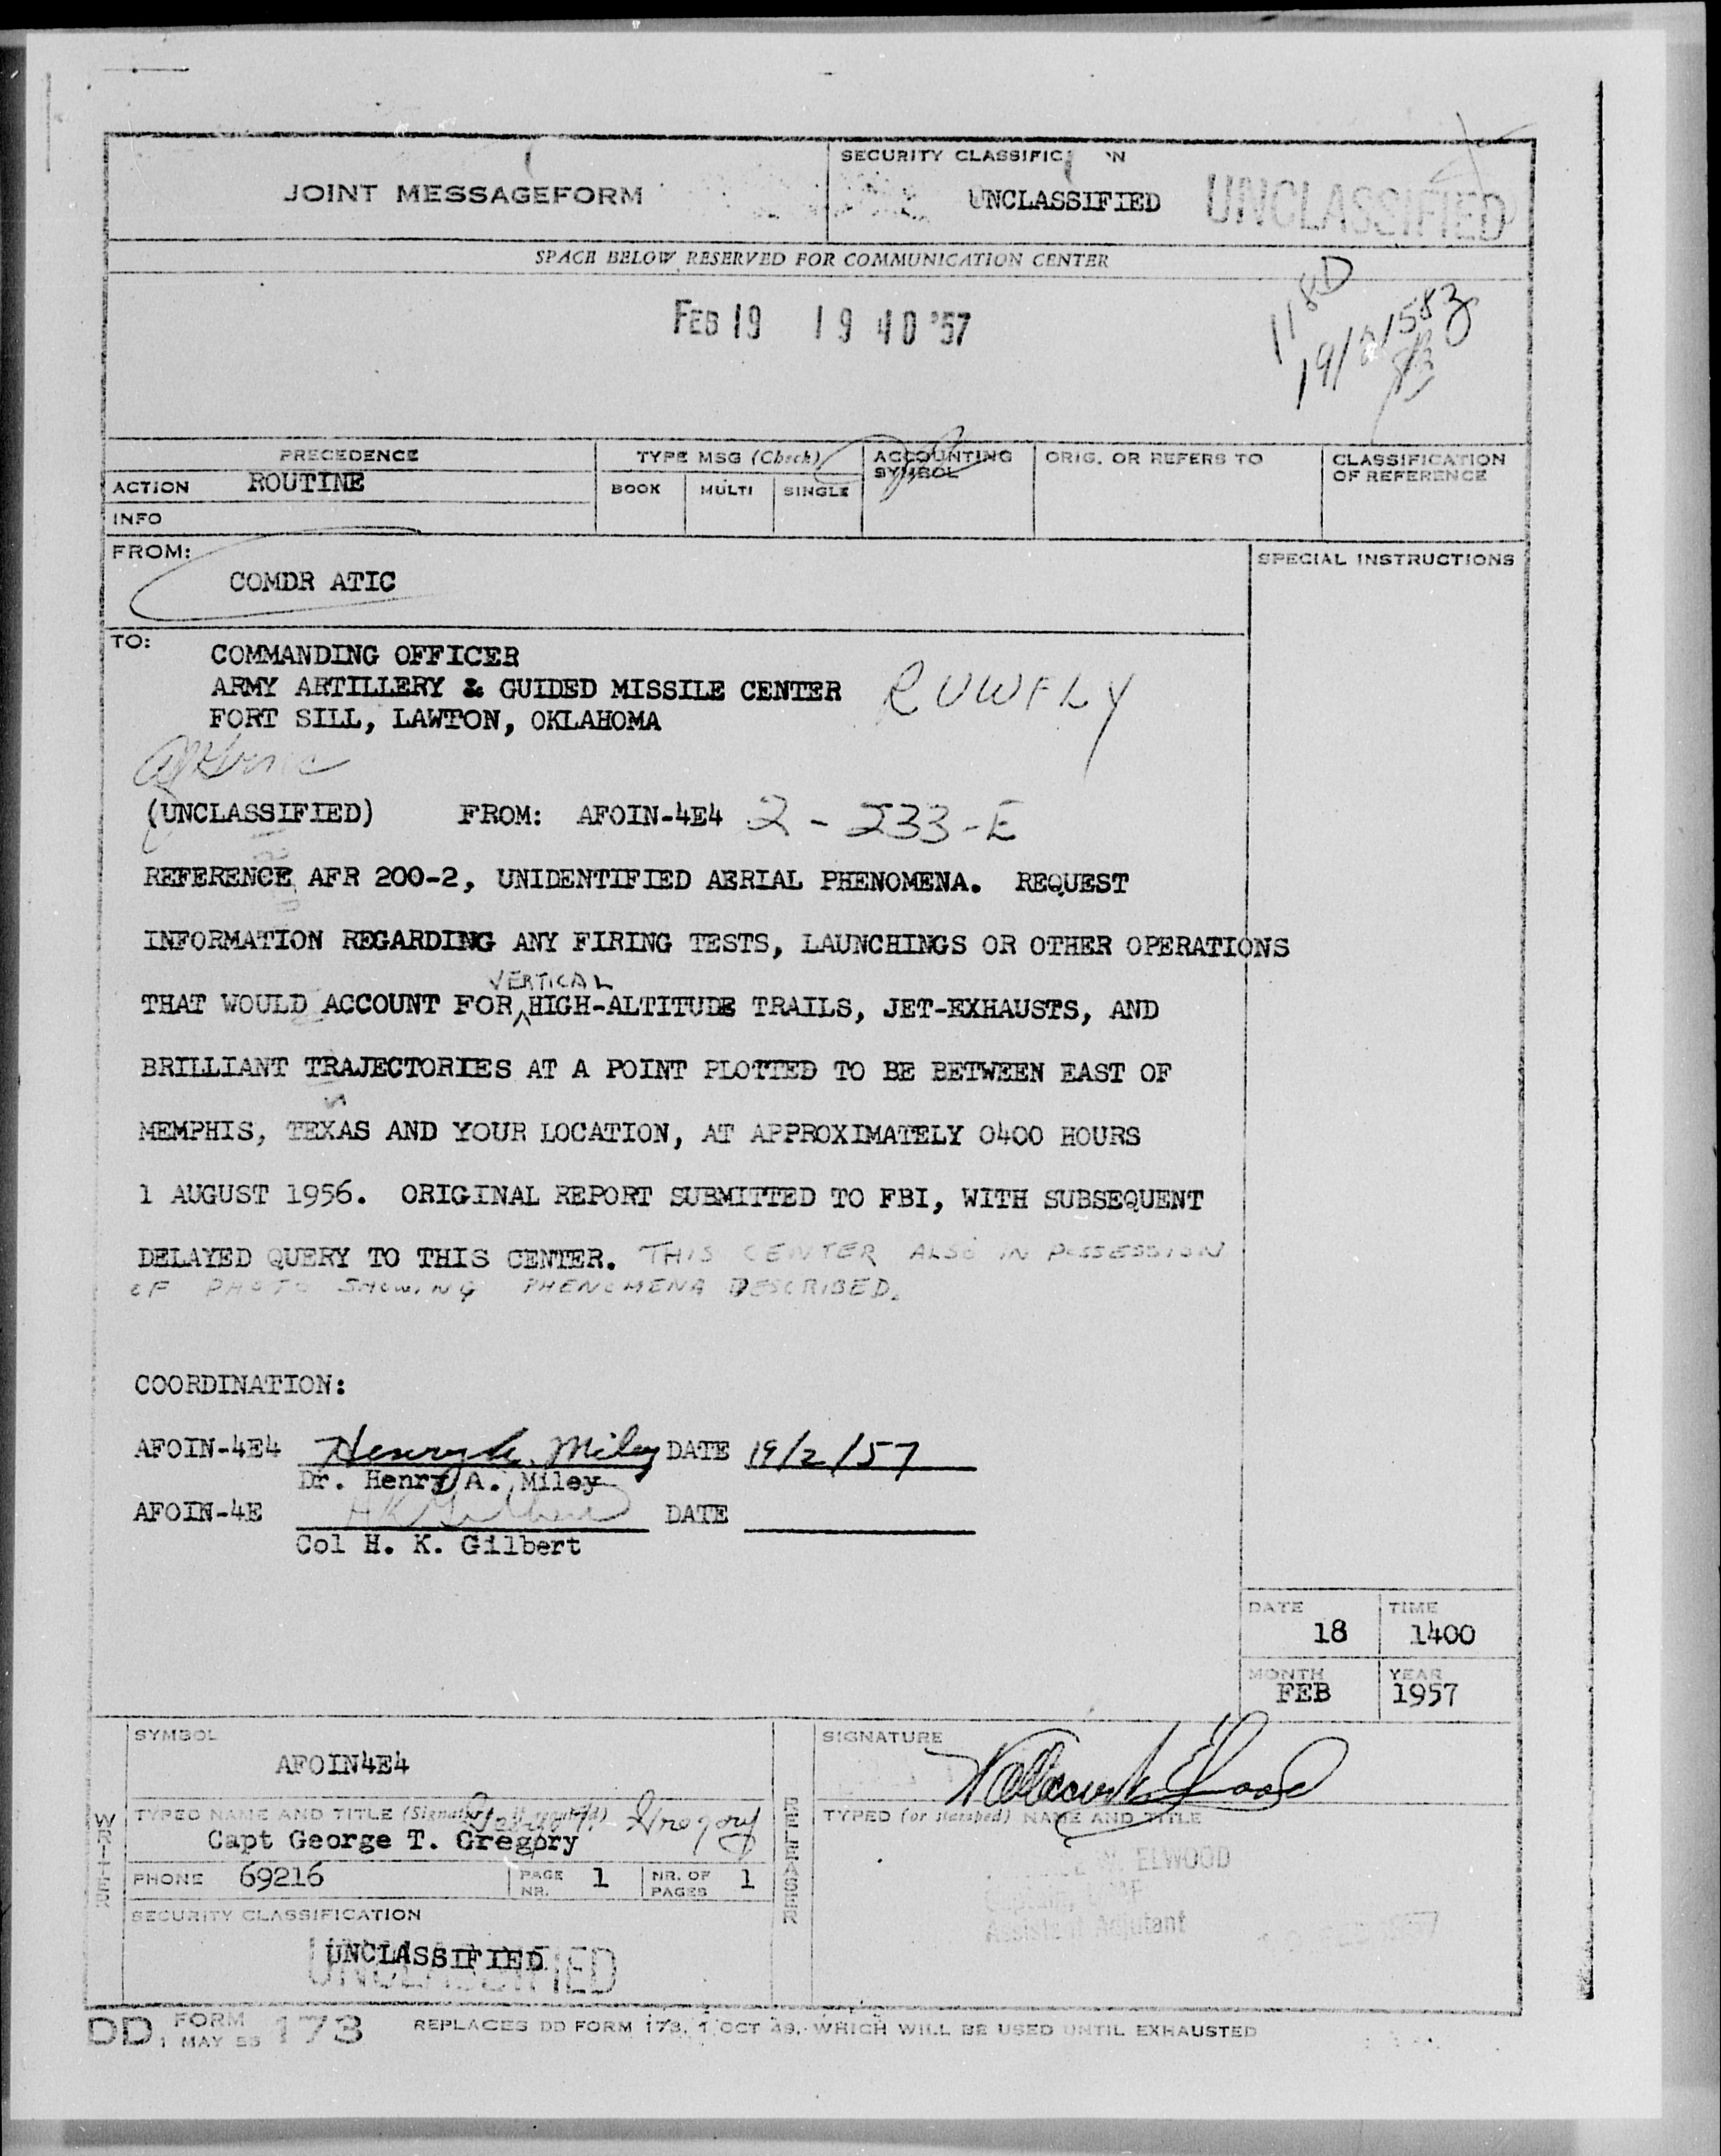 JOINT MESSAGEFORM
SECURITY CLASSIFIC N
UNCLASSIFIED UNCLASSIFIED
SPACE BELOW RESERVED FOR COMMUNICATION CENTER
FEB 19 19 40 '57
118D
PRECEDENCE
TYPE MSG (Check)
ACCOUNTING SYMBOL
ORIG. OR REFERS TO
CLASSIFICATION OF REFERENCE
ACTION ROUTINE
BOOK MULTI SINGLE
INFO
FROM:
COMDR ATIC
SPECIAL INSTRUCTIONS
TO:
COMMANDING OFFICER
ARMY ARTILLERY & GUIDED MISSILE CENTER RUWFLY
FORT SILL, LAWTON, OKLAHOMA
(UNCLASSIFIED) FROM: AFOIN-4E4 2-233-E
REFERENCE AFR 200-2, UNIDENTIFIED AERIAL PHENOMENA. REQUEST
INFORMATION REGARDING ANY FIRING TESTS, LAUNCHINGS OR OTHER OPERATIONS
VERTICAL
THAT WOULD ACCOUNT FOR HIGH-ALTITUDE TRAILS, JET-EXHAUSTS, AND
BRILLIANT TRAJECTORIES AT A POINT PLOTTED TO BE BETWEEN EAST OF
MEMPHIS, TEXAS AND YOUR LOCATION, AT APPROXIMATELY 0400 HOURS
1 AUGUST 1956. ORIGINAL REPORT SUBMITTED TO FBI, WITH SUBSEQUENT
DELAYED QUERY TO THIS CENTER. THIS CENTER ALSO IN POSSESSION
OF PHOTO SHOWING PHENOMENA DESCRIBED.
COORDINATION:
AFOIN-4E4 Henry A. Miley DATE 19/2/57
Dr. Henry A. Miley
AFOIN-4E HKGilbert DATE
Col H. K. Gilbert
DATE 18 TIME 1400
MONTH FEB YEAR 1957
WRITER
SYMBOL
AFOIN4E4
TYPED NAME AND TITLE (Signature, if required) George T. Gregory
Capt George T. Gregory
PHONE 69216 PAGE NR. 1 NR. OF PAGES 1
SECURITY CLASSIFICATION
UNCLASSIFIED
UNCLASSIFIED
RELEASER
SIGNATURE
TYPED (or stamped) NAME AND TITLE
W. ELWOOD
Captain, USAF
Assistant Adjutant
DD FORM 173
1 MAY 53
REPLACES DD FORM 173, 1 OCT 49, WHICH WILL BE USED UNTIL EXHAUSTED